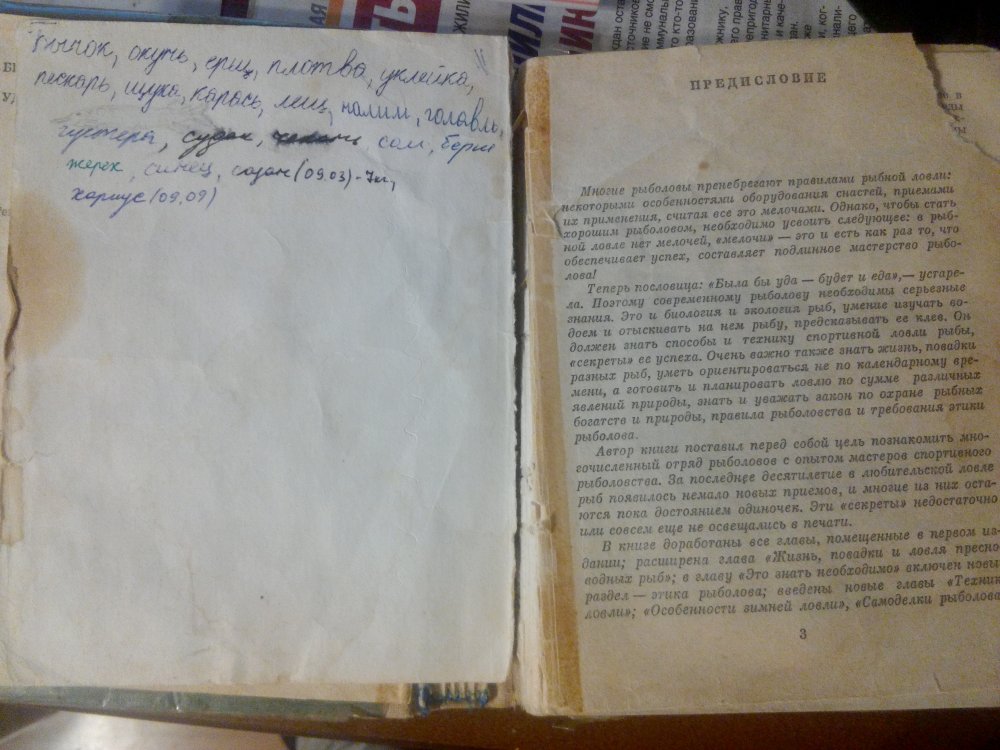 бычок, окунь, ерш, плотва, уклейка,
пескарь, щука, карась, лещ, налим, голавль,
густера, судак, чехонь, сом, берш
жерех, синец, сазан (09.03) - 7кг,
хариус (09.09)
ПРЕДИСЛОВИЕ
Многие рыболовы пренебрегают правилами рыбной ловли:
некоторыми особенностями оборудования снастей, приемами
их применения, считая все это мелочами. Однако, чтобы стать
хорошим рыболовом, необходимо усвоить следующее: в рыб-
ной ловле нет мелочей, «мелочи» — это и есть как раз то, что
обеспечивает успех, составляет подлинное мастерство рыбо-
лова!
Теперь пословица: «Была бы уда — будет и еда»,— устаре-
ла. Поэтому современному рыболову необходимы серьезные
знания. Это и биология и экология рыб, умение изучать во-
доем и отыскивать на нем рыбу, предсказывать ее клев. Он
должен знать способы и технику спортивной ловли рыбы,
«секреты» ее успеха. Очень важно также знать жизнь, повадки
разных рыб, уметь ориентироваться не по календарному вре-
мени, а готовить и планировать ловлю по сумме различных
явлений природы, знать и уважать закон по охране рыбных
богатств и природы, правила рыболовства и требования этики
рыболова.
Автор книги поставил перед собой цель познакомить мно-
гочисленный отряд рыболовов с опытом мастеров спортивного
рыболовства. За последнее десятилетие в любительской ловле
рыб появилось немало новых приемов, и многие из них оста-
ются пока достоянием одиночек. Эти «секреты» недостаточно
или совсем еще не освещались в печати.
В книге доработаны все главы, помещенные в первом из-
дании; расширена глава «Жизнь, повадки и ловля пресно-
водных рыб»; в главу «Это знать необходимо» включен новы
раздел — этика рыболова; введены новые главы «Техник
ловли»; «Особенности зимней ловли», «Самоделки рыболова
3